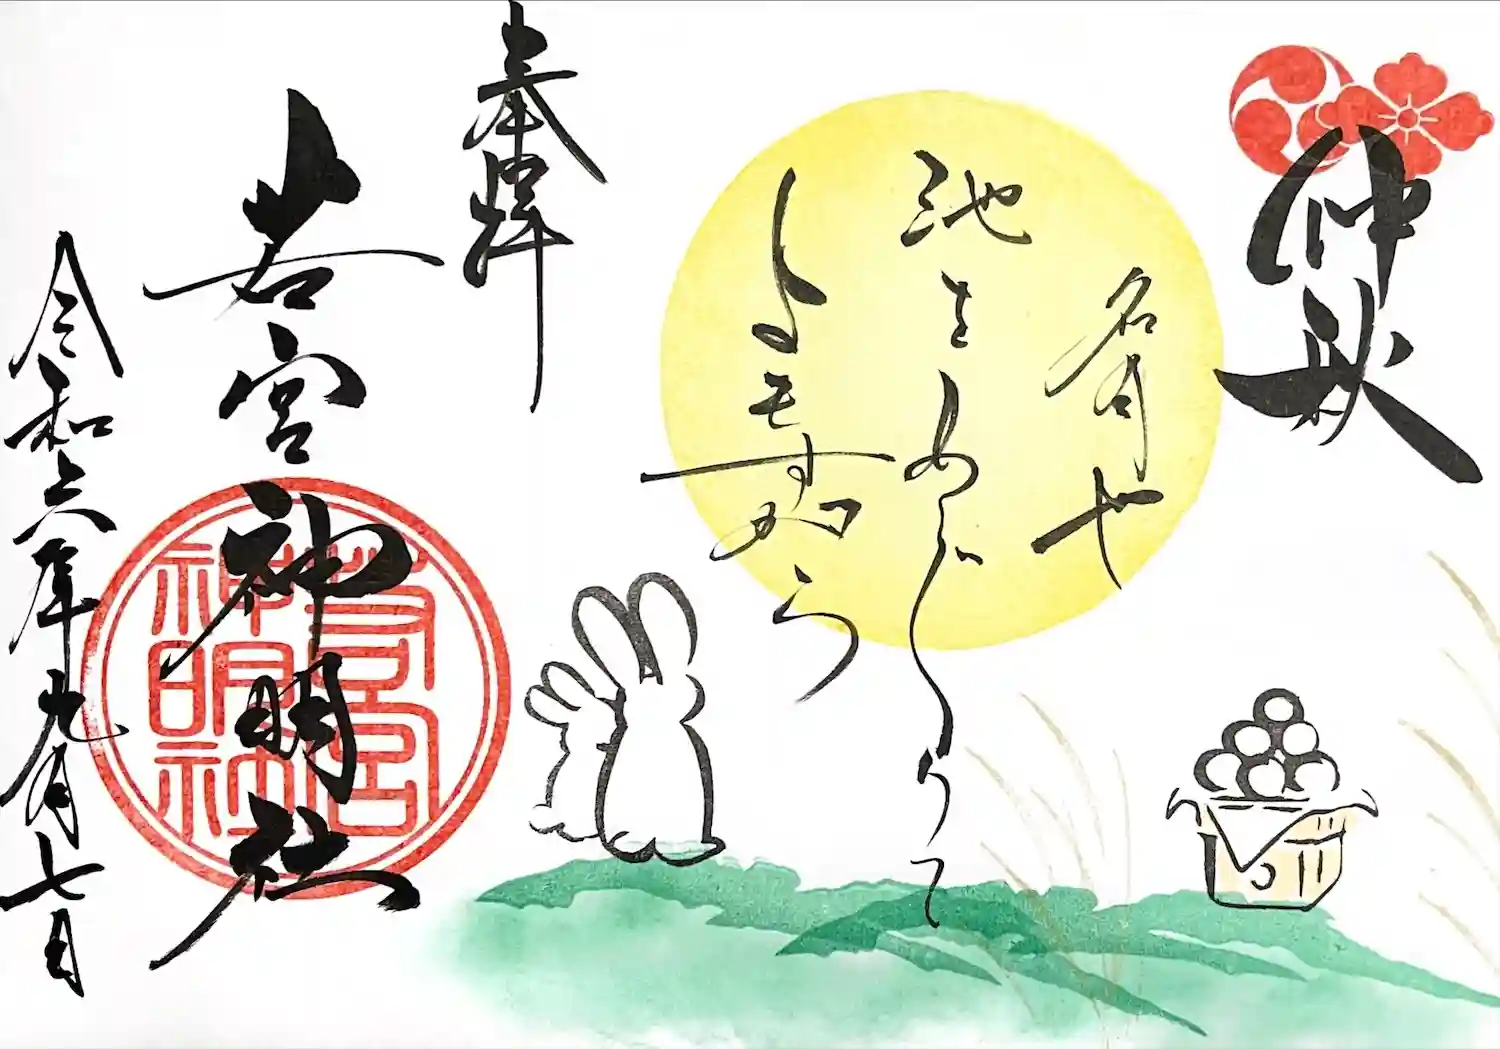 仲秋
名月や
池をめぐりて
よもすから
奉拝
若宮神明社
若宮
神明社
令和六年九月七日